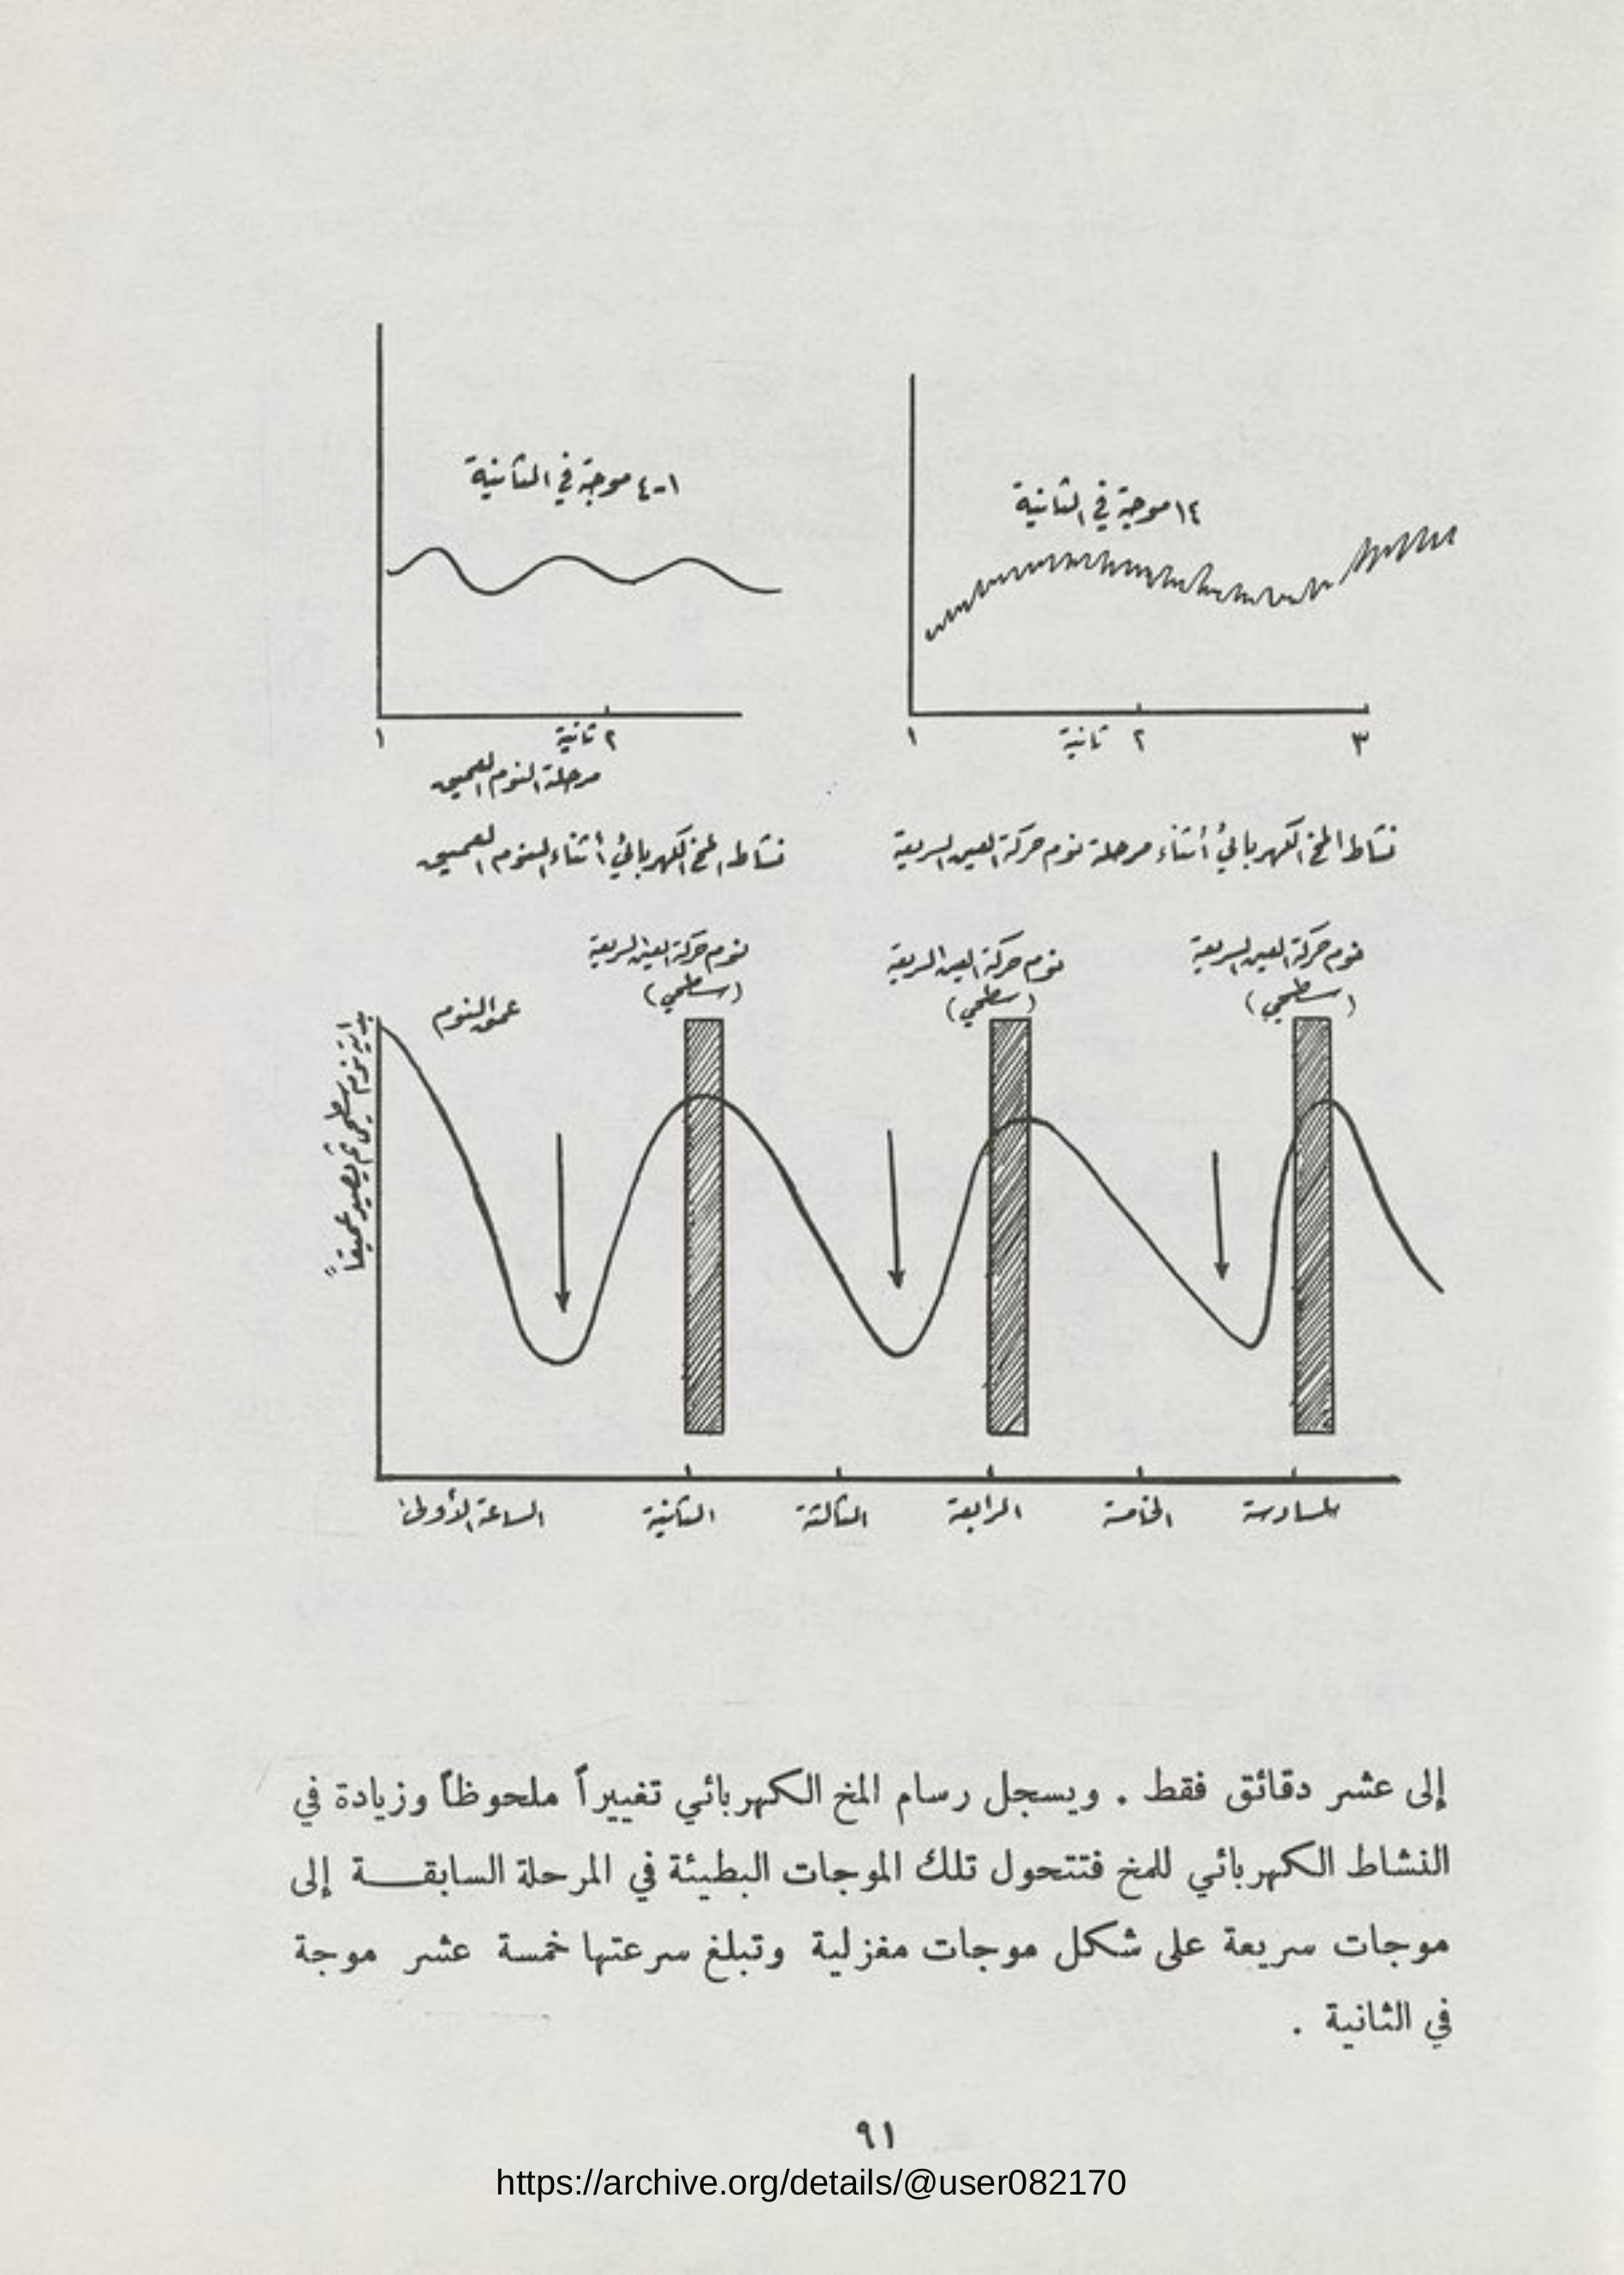 ١٤ موجة في الثانية
١ ٢ ثانية ٣
نشاط المخ الكهربائي أثناء مرحلة نوم حركة العين السريعة
١-٤ موجة في الثانية
١ ٢ ثانية
مرحلة النوم العميق
نشاط المخ الكهربائي أثناء النوم العميق
نوم حركة العين السريعة
(سطحي)
نوم حركة العين السريعة
(سطحي)
نوم حركة العين السريعة
(سطحي)
عمق النوم
بداية نوم سطحي ثم يصير عميقاً
الساعة الأولى الثانية الثالثة الرابعة الخامسة السادسة
إلى عشر دقائق فقط . ويسجل رسام المخ الكهربائي تغييراً ملحوظاً وزيادة في
النشاط الكهربائي للمخ فتتحول تلك الموجات البطيئة في المرحلة السابقـــة إلى
موجات سريعة على شكل موجات مغزلية وتبلغ سرعتها خمسة عشر موجة
في الثانية .
٩١
https://archive.org/details/@user082170